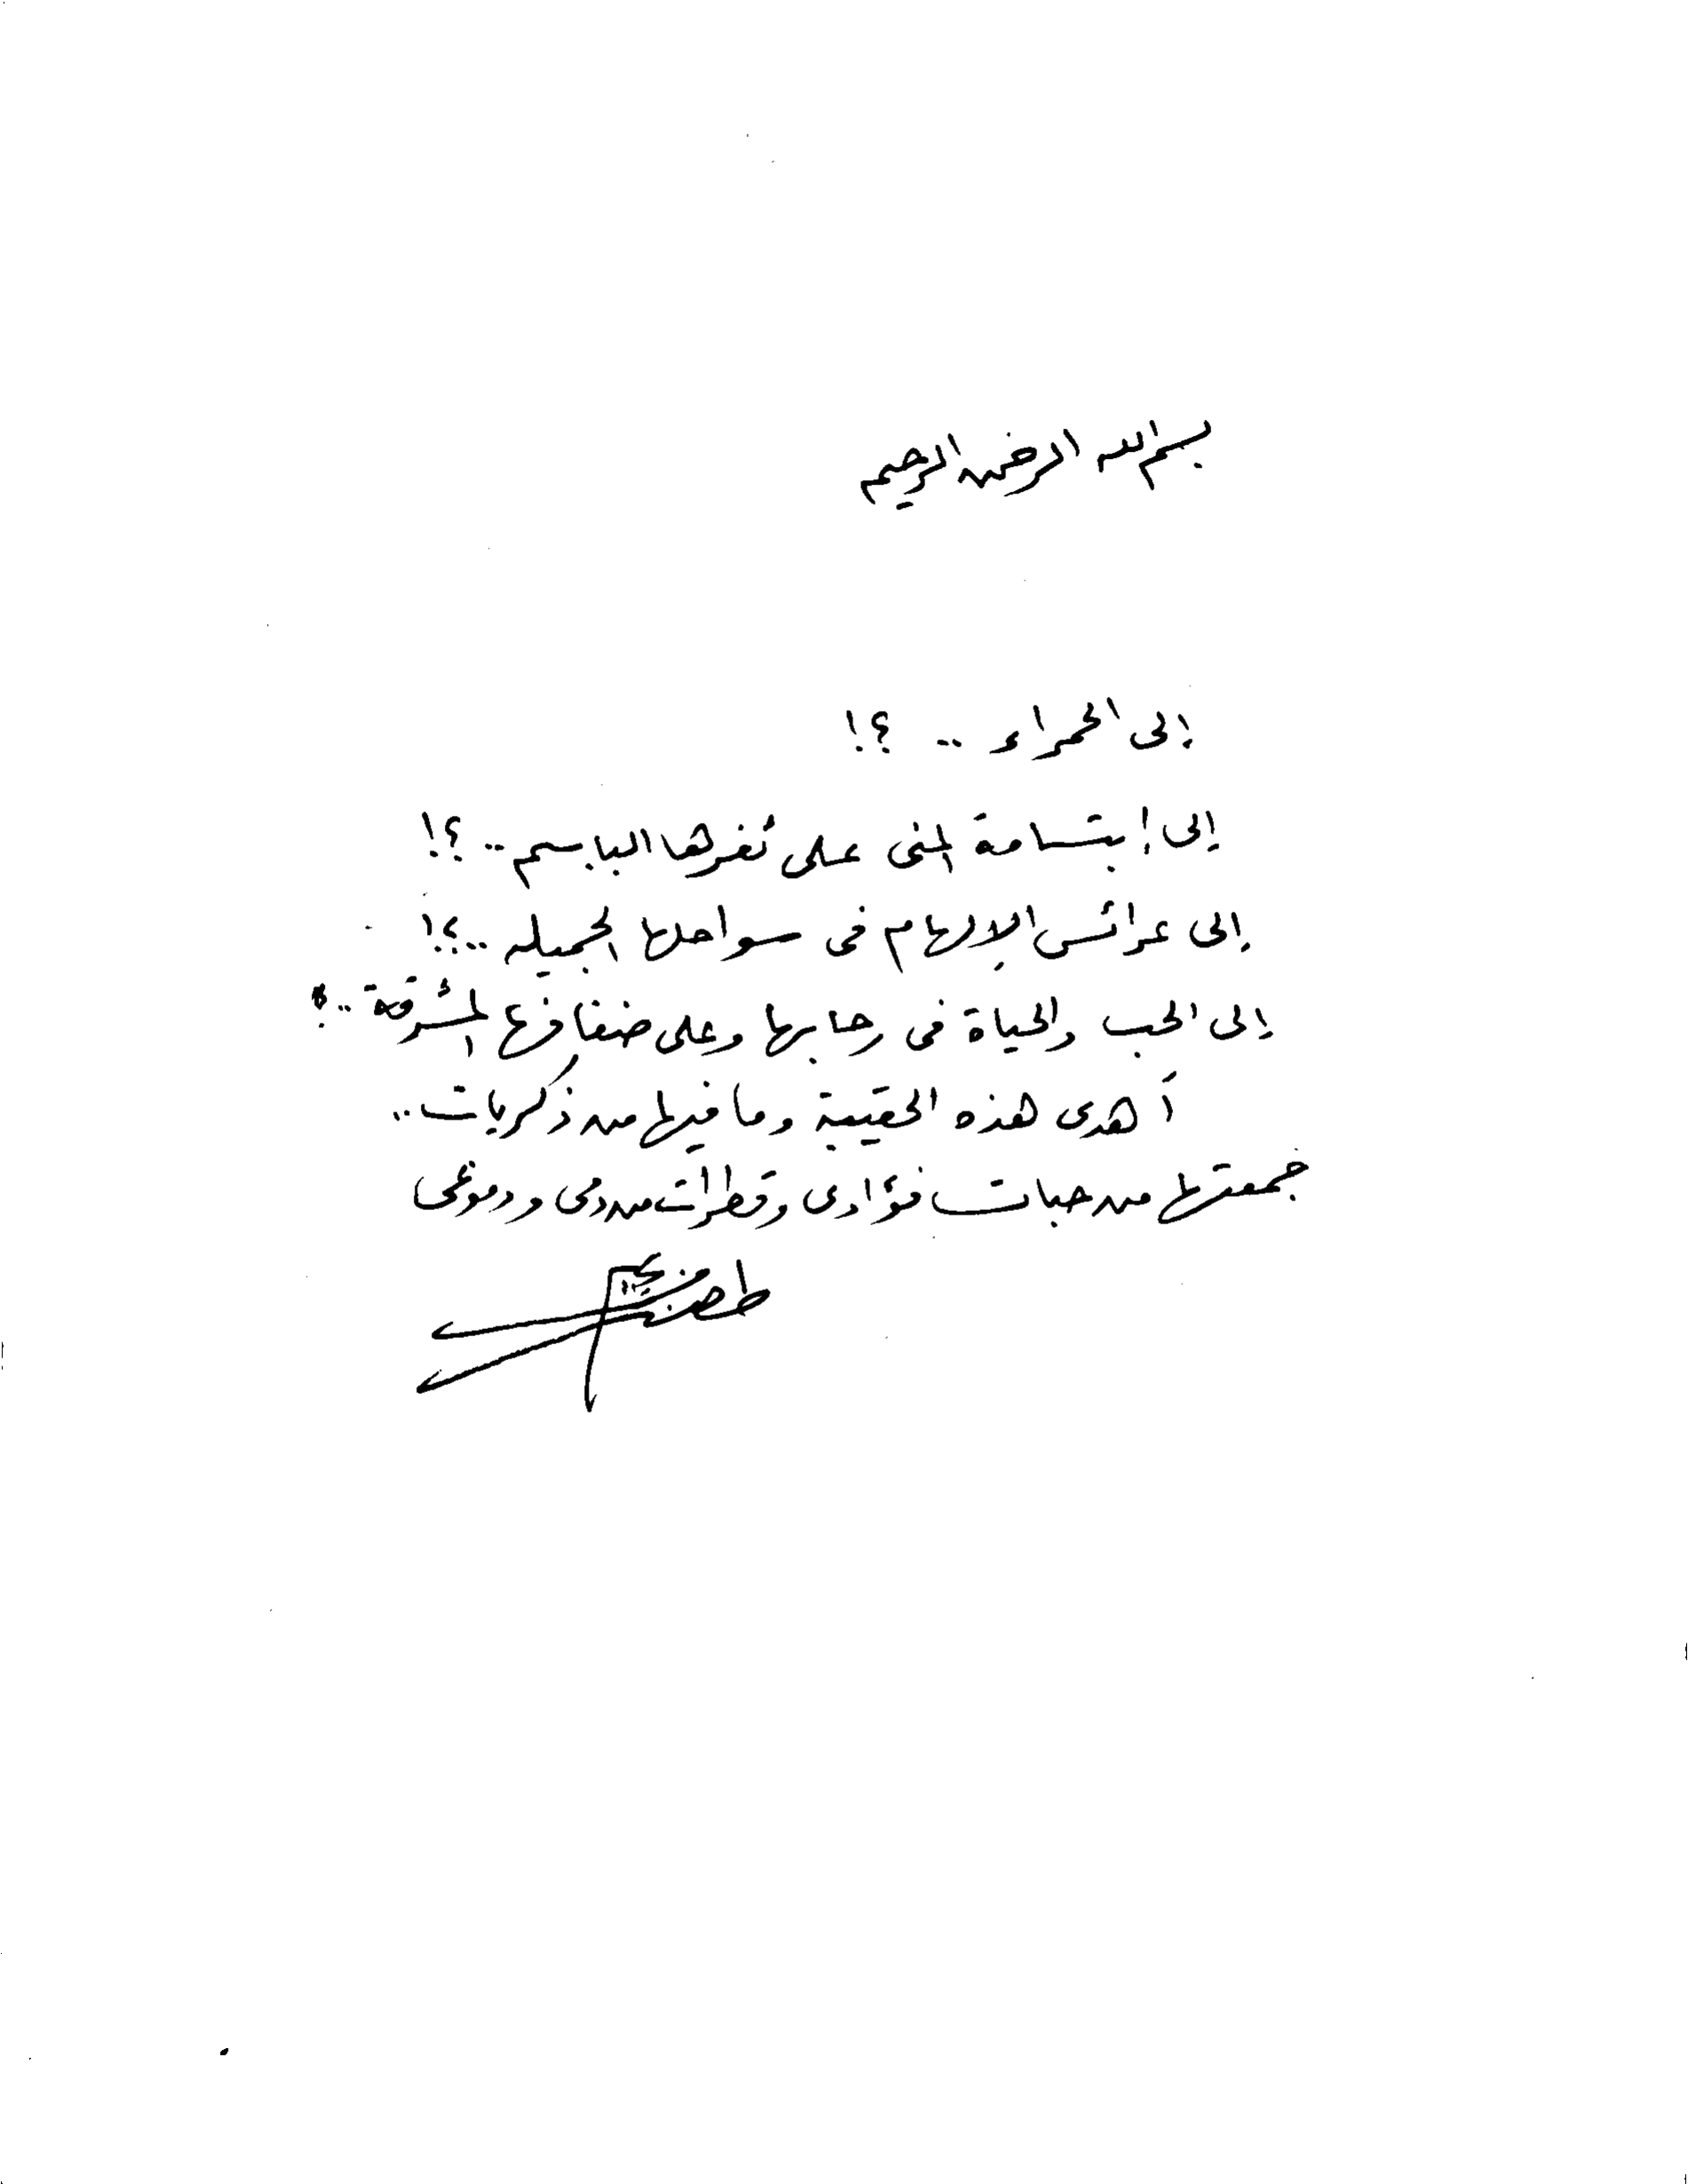 بسم الله الرحمن الرحيم
إلى الحمراء .. ؟!
إلى إبتسامة المنى على ثغرها الباسم .. ؟!
إلى عرائس الإلهام فى سواحلها الجميله .. ؟!
إلى الحب والحياة فى رحابها وعلى ضفافها المشرقة .. ؟
أهدى هذه الحقيبة وما فيها من ذكريات ..
جمعتها من حبات فؤادى وقطرات من دمى ودموعى